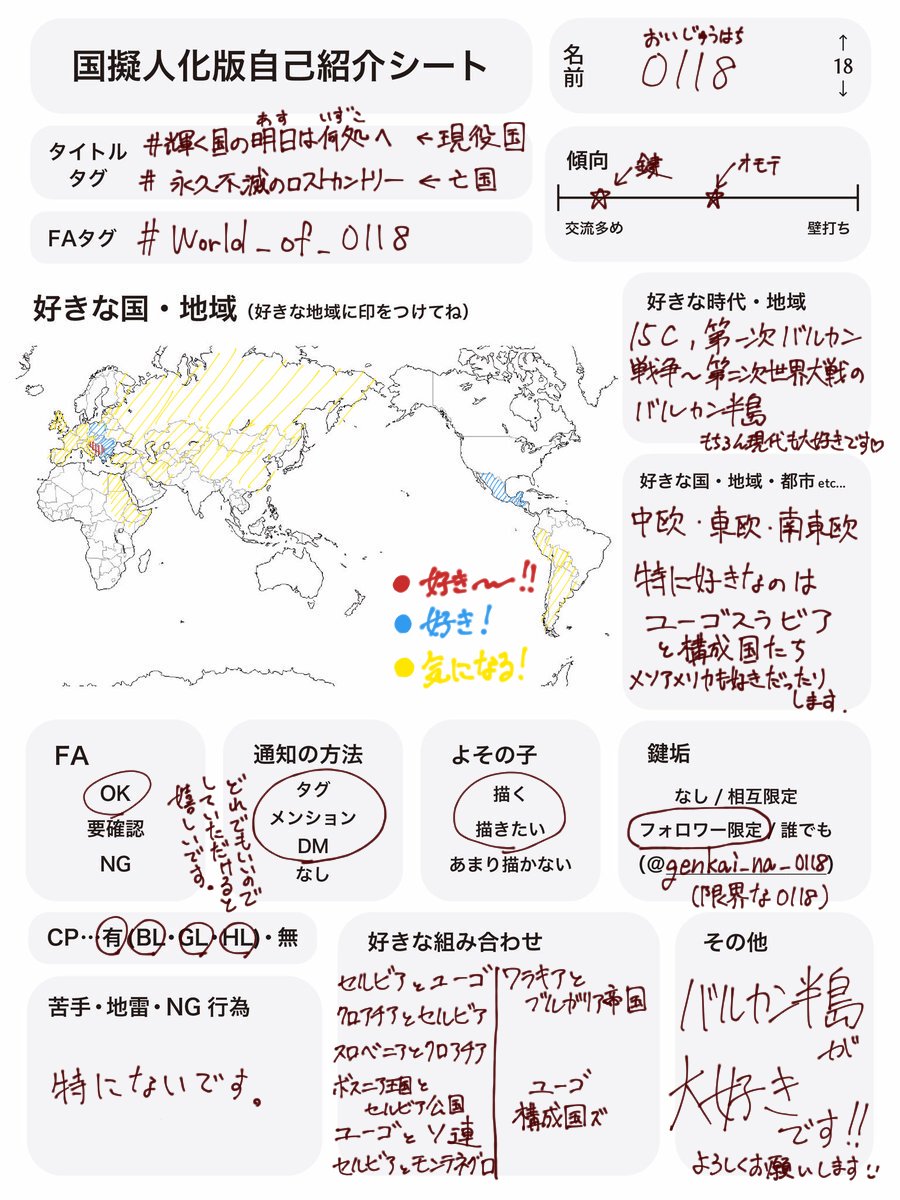 国擬人化版自己紹介シート
おいじゅうはち
名前
0118
↑
18
↓
タイトル
タグ
あす いずこ
#輝く国の明日は何処へ ←現役国
# 永久不滅のロストカントリー ←亡国
FAタグ
# World_of_0118
傾向
鍵
オモテ
交流多め
壁打ち
好きな国・地域（好きな地域に印をつけてね）
好き〜!!
好き!
気になる!
好きな時代・地域
15C, 第一次バルカン
戦争〜第二次世界大戦の
バルカン半島
もちろん現代も大好きです♡
好きな国・地域・都市 etc...
中欧・東欧・南東欧
特に好きなのは
ユーゴスラビア
と構成国たち
メソアメリカも好きだったり
します.
FA
OK
要確認
NG
どれでもいいので
していただけると
嬉しいです。
通知の方法
タグ
メンション
DM
なし
よその子
描く
描きたい
あまり描かない
鍵垢
なし / 相互限定
フォロワー限定 / 誰でも
(@genkai_na_0118)
(限界な0118)
CP…有 (BL・GL・HL)・無
苦手・地雷・NG 行為
特にないです。
好きな組み合わせ
セルビアとユーゴ
クロアチアとセルビア
スロベニアとクロアチア
ボスニア王国と
セルビア公国
ユーゴとソ連
セルビアとモンテネグロ
ワラキアと
ブルガリア帝国
ユーゴ
構成国ズ
その他
バルカン半島
が
大好き
です!!
よろしくお願いします